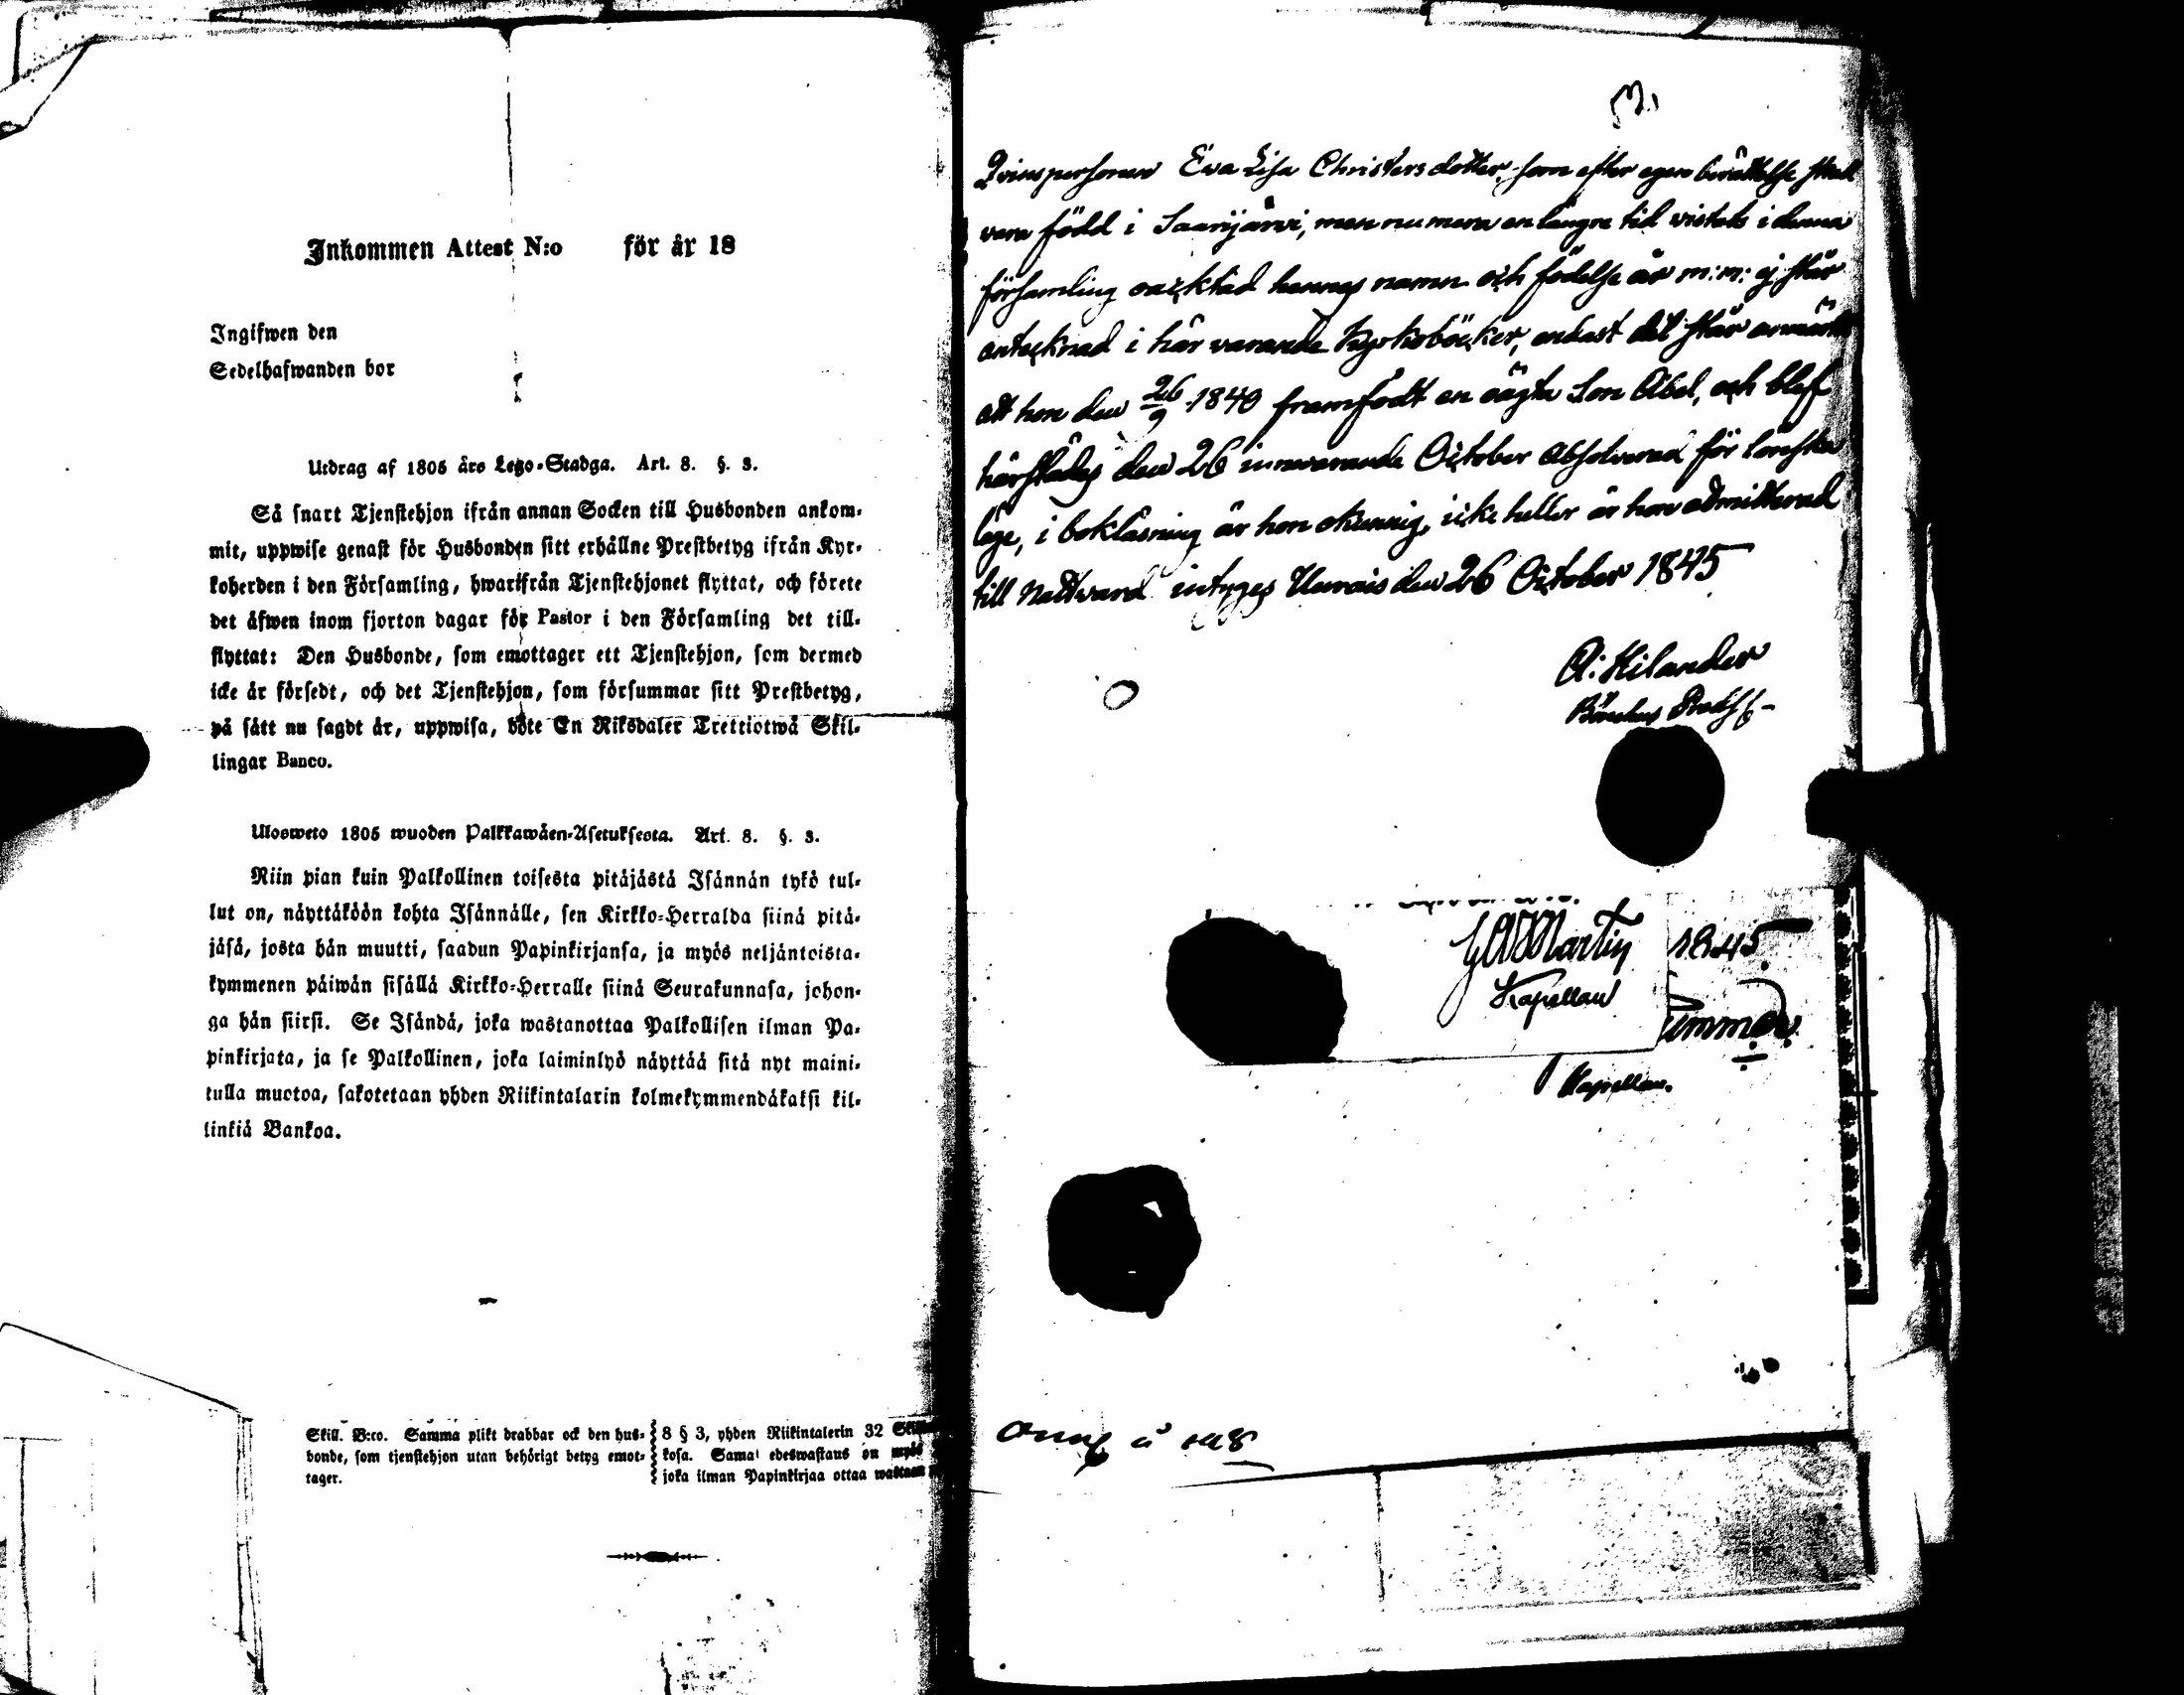 Inkommen Attest N:o för år 18
Ingifwen den
Sedelhafwanden bor
Utdrag af 1805 års Lego-Stadga. Art. 8. §. 3.
Så snart Tjenstehjon ifrån annan Socken till Husbonden ankom-
mit, uppwise genast för Husbonden sitt erhållne Prestbetyg ifrån Kyr-
koherden i den Församling, hwarifrån Tjenstehjonet flyttat, och förete
det äfwen inom fjorton dagar för Pastor i den Församling det till-
flyttat: Den Husbonde, som emottager ett Tjenstehjon, som dermed
icke är försedt, och det Tjenstehjon, som försummar sitt Prestbetyg,
på sätt nu sagdt är, uppwisa, böte En Riksdaler Trettiotwå Skil-
lingar Banco.
Ulosweto 1805 wuoden Palkkawäen-Asetuksesta. Art. 8. §. 3.
Niin pian kuin Palkollinen toisesta pitäjästä Isännän tykö tul-
lut on, näyttäköön kohta Isännälle, sen Kirkko-Herralda siinä pitä-
jäsä, josta hän muutti, saadun Papinkirjansa, ja myös neljäntoista-
kymmenen päiwän sisällä Kirkko-Herralle siinä Seurakunnasa, johon-
ga hän siirsi. Se Isändä, joka wastanottaa Palkollisen ilman Pa-
pinkirjata, ja se Palkollinen, joka laiminlyö näyttää sitä nyt maini-
tulla muotoa, sakotetaan yhden Riikintalarin kolmekymmendäkaksi kil-
linkiä Bankoa.
Skill. B:co. Samma plikt drabbar ock den hus-
bonde, som tjenstehjon utan behörigt betyg emot-
tager.
8 § 3, yhden Riikintalerin 32
kosa. Sama edeswastaus on myös
joka ilman Papinkirjaa ottaa wastaan
Qvinspersonen Eva Lisa Christersdotter, som efter egen berättelse skall
vara född i Saarijärvi, men numera en längre tid vistats i denna
församling oacktad hennes namn och födelse år m:m: ej står
antecknad i här varande kyrkoböcker, endast det står anmärkt
att hon den 26/9 1840 framfödt en oägta Son Abel, och blef
härstädes den 26 innevarande October absolverad för lönska
läge, i bokläsning är hon okunnig, icke heller är hon admitterad
till Nattvard intyges Uurais den 26 October 1845
A: Kilander
Martin
Kapellan
1845
Kapellan.